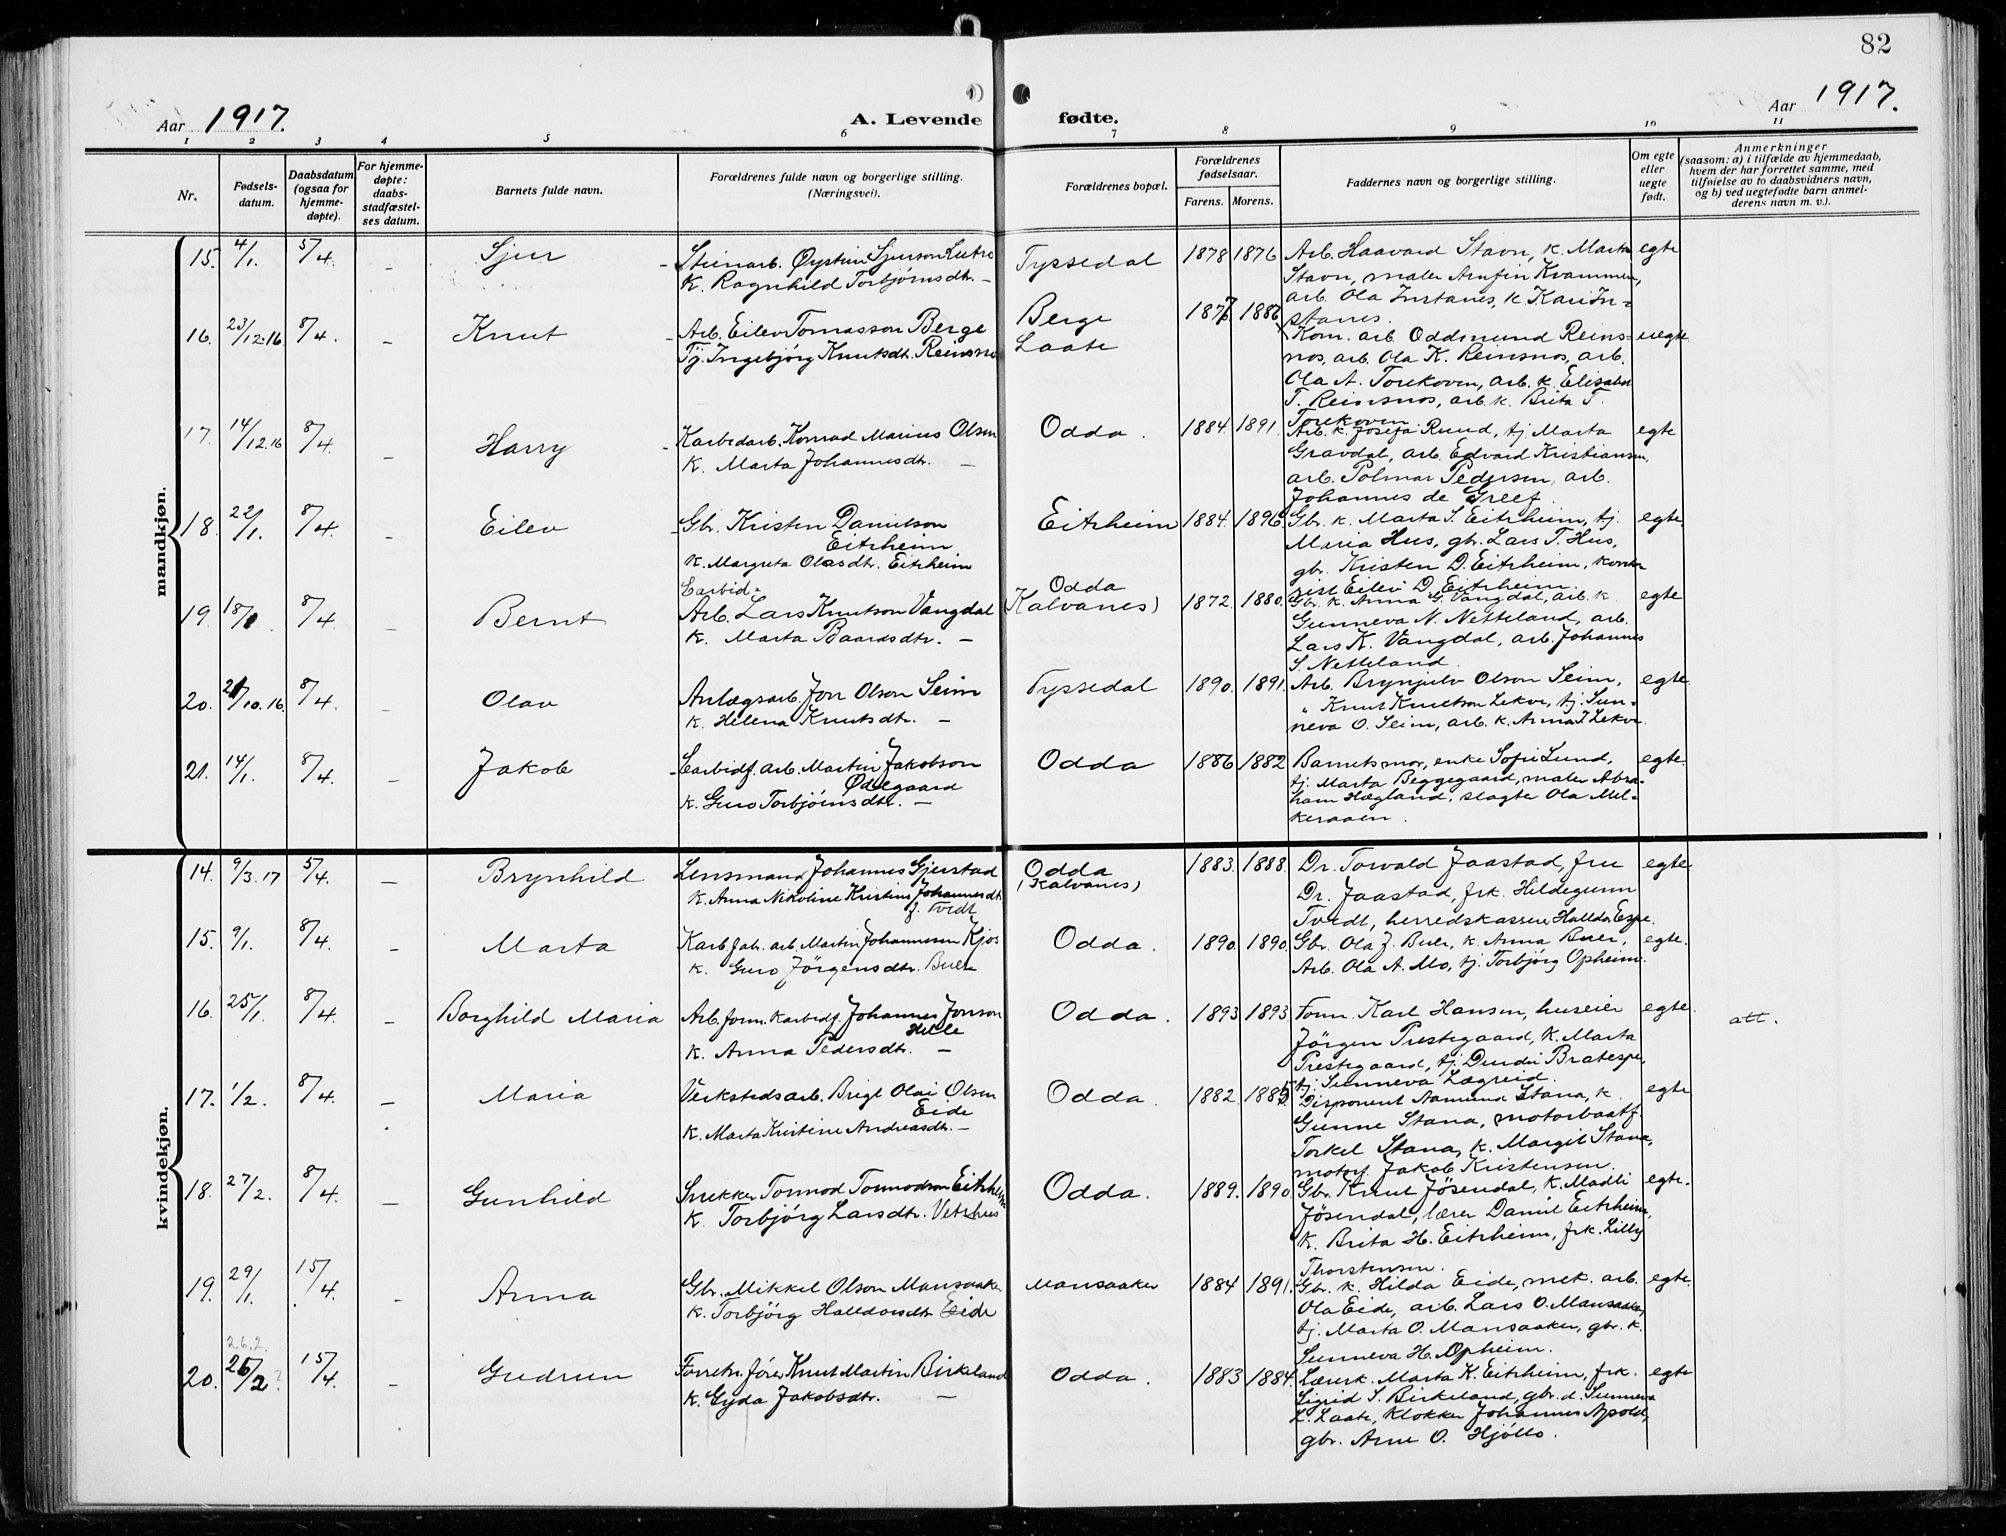 82
Aar 1917.
A. Levende fødte.
Aar 1917.
1 2 3 4 5 6 7 8 9 10 11
Nr.
Fødsels-
datum.
Daabsdatum
(ogsaa for
hjemme-
døpte).
For hjemme-
døpte:
daabs-
stadfæstel-
ses datum.
Barnets fulde navn.
Forældrenes fulde navn og borgerlige stilling.
(Næringsvei).
Forældrenes bopæl.
Forældrenes
fødselsaar.
Farens. Morens.
Faddernes navn og borgerlige stilling.
Om egte
eller
uegte
født.
Anmerkninger
(saasom: a) i tilfælde av hjemmedaab,
hvem der har forrettet samme, med
tilføielse av to daabsvidners navn,
og b) ved uegtefødte barn anmel-
derens navn m. v.).
mandkjøn.
15. 4/1. 5/4. – Sjur
Steinarb. Øystein Sjurson Lutro
k. Ragnhild Torbjørnsdtr. –
Tyssedal 1878 1876
Arb. Haavard Stavn, k. Marta
Stavn, maler Arnfin Kvammen,
arb. Ola Instanes, k Kari In-
stanes.
egte
16. 23/12.16 8/4. – Knut
Arb. Eilev Tomasson Berge
Tj. Ingebjørg Knutsdt. Reinsnos
Berge
Laate
1877 1886
Kom. arb. Oddmund Reins-
nos, arb. Ola K. Reinsnos, arb.
Ola A. Torekoven, arb. k. Elisabet
T. Reinsnos, arb. k. Brita T.
Torekoven
uegte
17. 14/12.16 8/4. – Harry
Karbedarb. Konrad Marius Olsen
k. Marta Johannesdtr. –
Odda. 1884. 1891.
Arb. k. Josefa Ruud, tj Marta
Gravdal, arb. Edvard Kristiansen,
arb. Polmar Pedersen, arb.
Johannes de Greef.
egte
18. 22/1. 8/4. – Eilev
Gbr. Kristen Danielson
Eitrheim
k. Margreta Olasdtr. Eitrheim
Eitrheim 1884. 1896.
Gbr. k. Marta S. Eitrheim, tj.
Maria Hus, gbr. Lars T. Hus,
gbr. Kristen D. Eitrheim, konto-
rist Eilev D. Eitrheim.
egte
19. 18/1. 8/4. – Bernt
Carbid-
Arb. Lars Knutson Vangdal
k. Marta Baardsdtr. –
Odda
(Kalvanes)
1872. 1880.
Gbr. k. Anna G. Vangdal, arb. k
Gunneva N. Netteland, arb.
Lars K. Vangdal, arb. Johannes
S. Netteland.
egte
20. 21/10.16 8/4. Olav
Anlægsarb. Jon Olson Seim
k. Helena Knutsdtr. –
Tyssedal 1890. 1891.
Arb. Brynjulv Olson Seim,
" Knut Knutson Lekve, tj. Sun-
neva O. Seim, arb. k. Anna I Lekve
egte
21. 14/1. 8/4. – Jakob
Carbidf. arb. Martin Jakobson
Ødegaard
k. Guro Torbjørnsdtr. –
Odda 1886 1882
Barnets mor, enke Sofie Lund,
tj. Marta Beggegaard, maler Abra-
ham Hægland, slagte Ola Mel-
keraaen.
egte
kvindekjøn.
14. 9/3.17 5/4. – Brynhild
Lensmand Johannes Gjerstad
k. Anna Nikoline Kristine Johannesdt.
f. Tvedt
Odda
(Kalvanes)
1883. 1888.
Dr. Torvald Jaastad, fru
Dr. Jaastad, frk. Hildegunn
Tvedt, herredskasserer Halldor Espe.
egte
15. 9/1. 8/4. – Marta
Karb.fab. arb. Martin Johannesen Kjos
k. Guro Jørgensdtr. Buer
Odda. 1890. 1890.
Gbr. Ola J. Buer, k. Anna Buer,
Arb. Ola A. Mo, tj. Torbjørg Opheim.
egte.
16. 25/1. 8/4. – Borghild Maria
Arb.form. Karbidf. Johannes Jonson
Helle
k. Anna Pedersdtr. –
Odda. 1893 1893
Form. Karl Hansen, huseier
Jørgen Prestegaard, k. Marta
Prestegaard, tj. Durdei Bratespe,
tj. Sunneva Lægreid.
egte. att.
17. 1/2. 8/4. – Maria
Verkstedsarb. Brigt Olai Olsen
Eide
k. Marta Kristine Andreasdtr. –
Odda. 1882. 1885.
Disponent Aamund Stana, k
Gunne Stana, motorbaatf.
Torkel Stana, k. Margit Stana,
motorf. Jakob Kristensen.
egte
18. 27/2. 8/4. – Gunhild
Snekker Tormod Tormodson Eitrheim
k. Torbjørg Larsdtr. Vetrhus
Odda. 1889. 1890.
Gbr. Knut Jøsendal, k. Madli
Jøsendal, lærer Daniel Eitrheim,
k. Brita H. Eitrheim, frk. Lilly
Thorstensen.
egte.
19. 29/1. 15/4. – Anna
Gbr. Mikkel Olson Mansaaker
k. Torbjørg Halldorsdtr Eide
Mansaaker 1884 1891.
Gbr. k. Hilda Eide, mek. arb.
Ola Eide, arb. Lars O. Mansaaker,
tj. Marta O. Mansaaker, gbr. k.
Sunneva H. Opheim.
egte.
26.2.
20. 26/2 ? 15/4. – Gudrun
Forretn.fører Knut Martin Birkeland
k. Gyda Jakobsdtr. –
Odda. 1883 1884.
Lærerk. Marta K. Eitrheim, frk.
Sigrid S. Birkeland, gbr. d. Sunneva
L. Laate, klokker Johannes Apold,
gbr. Arne O. Hjøllo.
egte